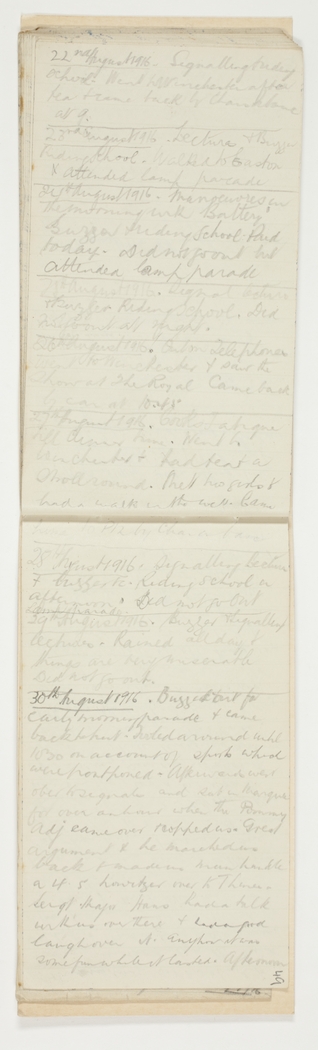 22nd August 1916. Signalling & riding
school. Went to Winchester after
tea & came back by
at 9.
23rd August 1916. Lecture & Buzzer
Riding School. Walked to Easton
& attended lamp parade
24th August 1916. Manoeuvres in
the morning with Battery
Buzzer & riding School. Paid
today. Did not go out but
attended lamp parade
25th August 1916. Signal lecture
& Buzzer Riding School. Did
not go out at night.
26th August 1916. Telephones
went to Winchester & saw the
show at The Royal. Came back
by car at 10.15
27th August 1916. fatigue
till dinner time. Went to
Winchester & had tea & a
stroll round. Met two girls &
had a walk
28th August 1916. Signalling Lecture
& buzzer &c. Riding School in
afternoon. Did not go out
Lamp parade.
29th August 1916. Buzzer Signalling
lectures. Rained all day &
things are very miserable
Did not go out.
30th August 1916. Buzzed out for
early morning parade & came
back to hut. around until
10.30 on account of sports which
were postponed. Afterwards went
over to signals and sat in Marquee
for over an hour when the
Adj came over & copped us. Great
argument & he marched us
back & made us man handle
a 4.5 howitzer over to There
Sergt Major had a talk
with us over there & had a good
laugh over it. anyhow it was
some fun while it lasted. Afternoon
49